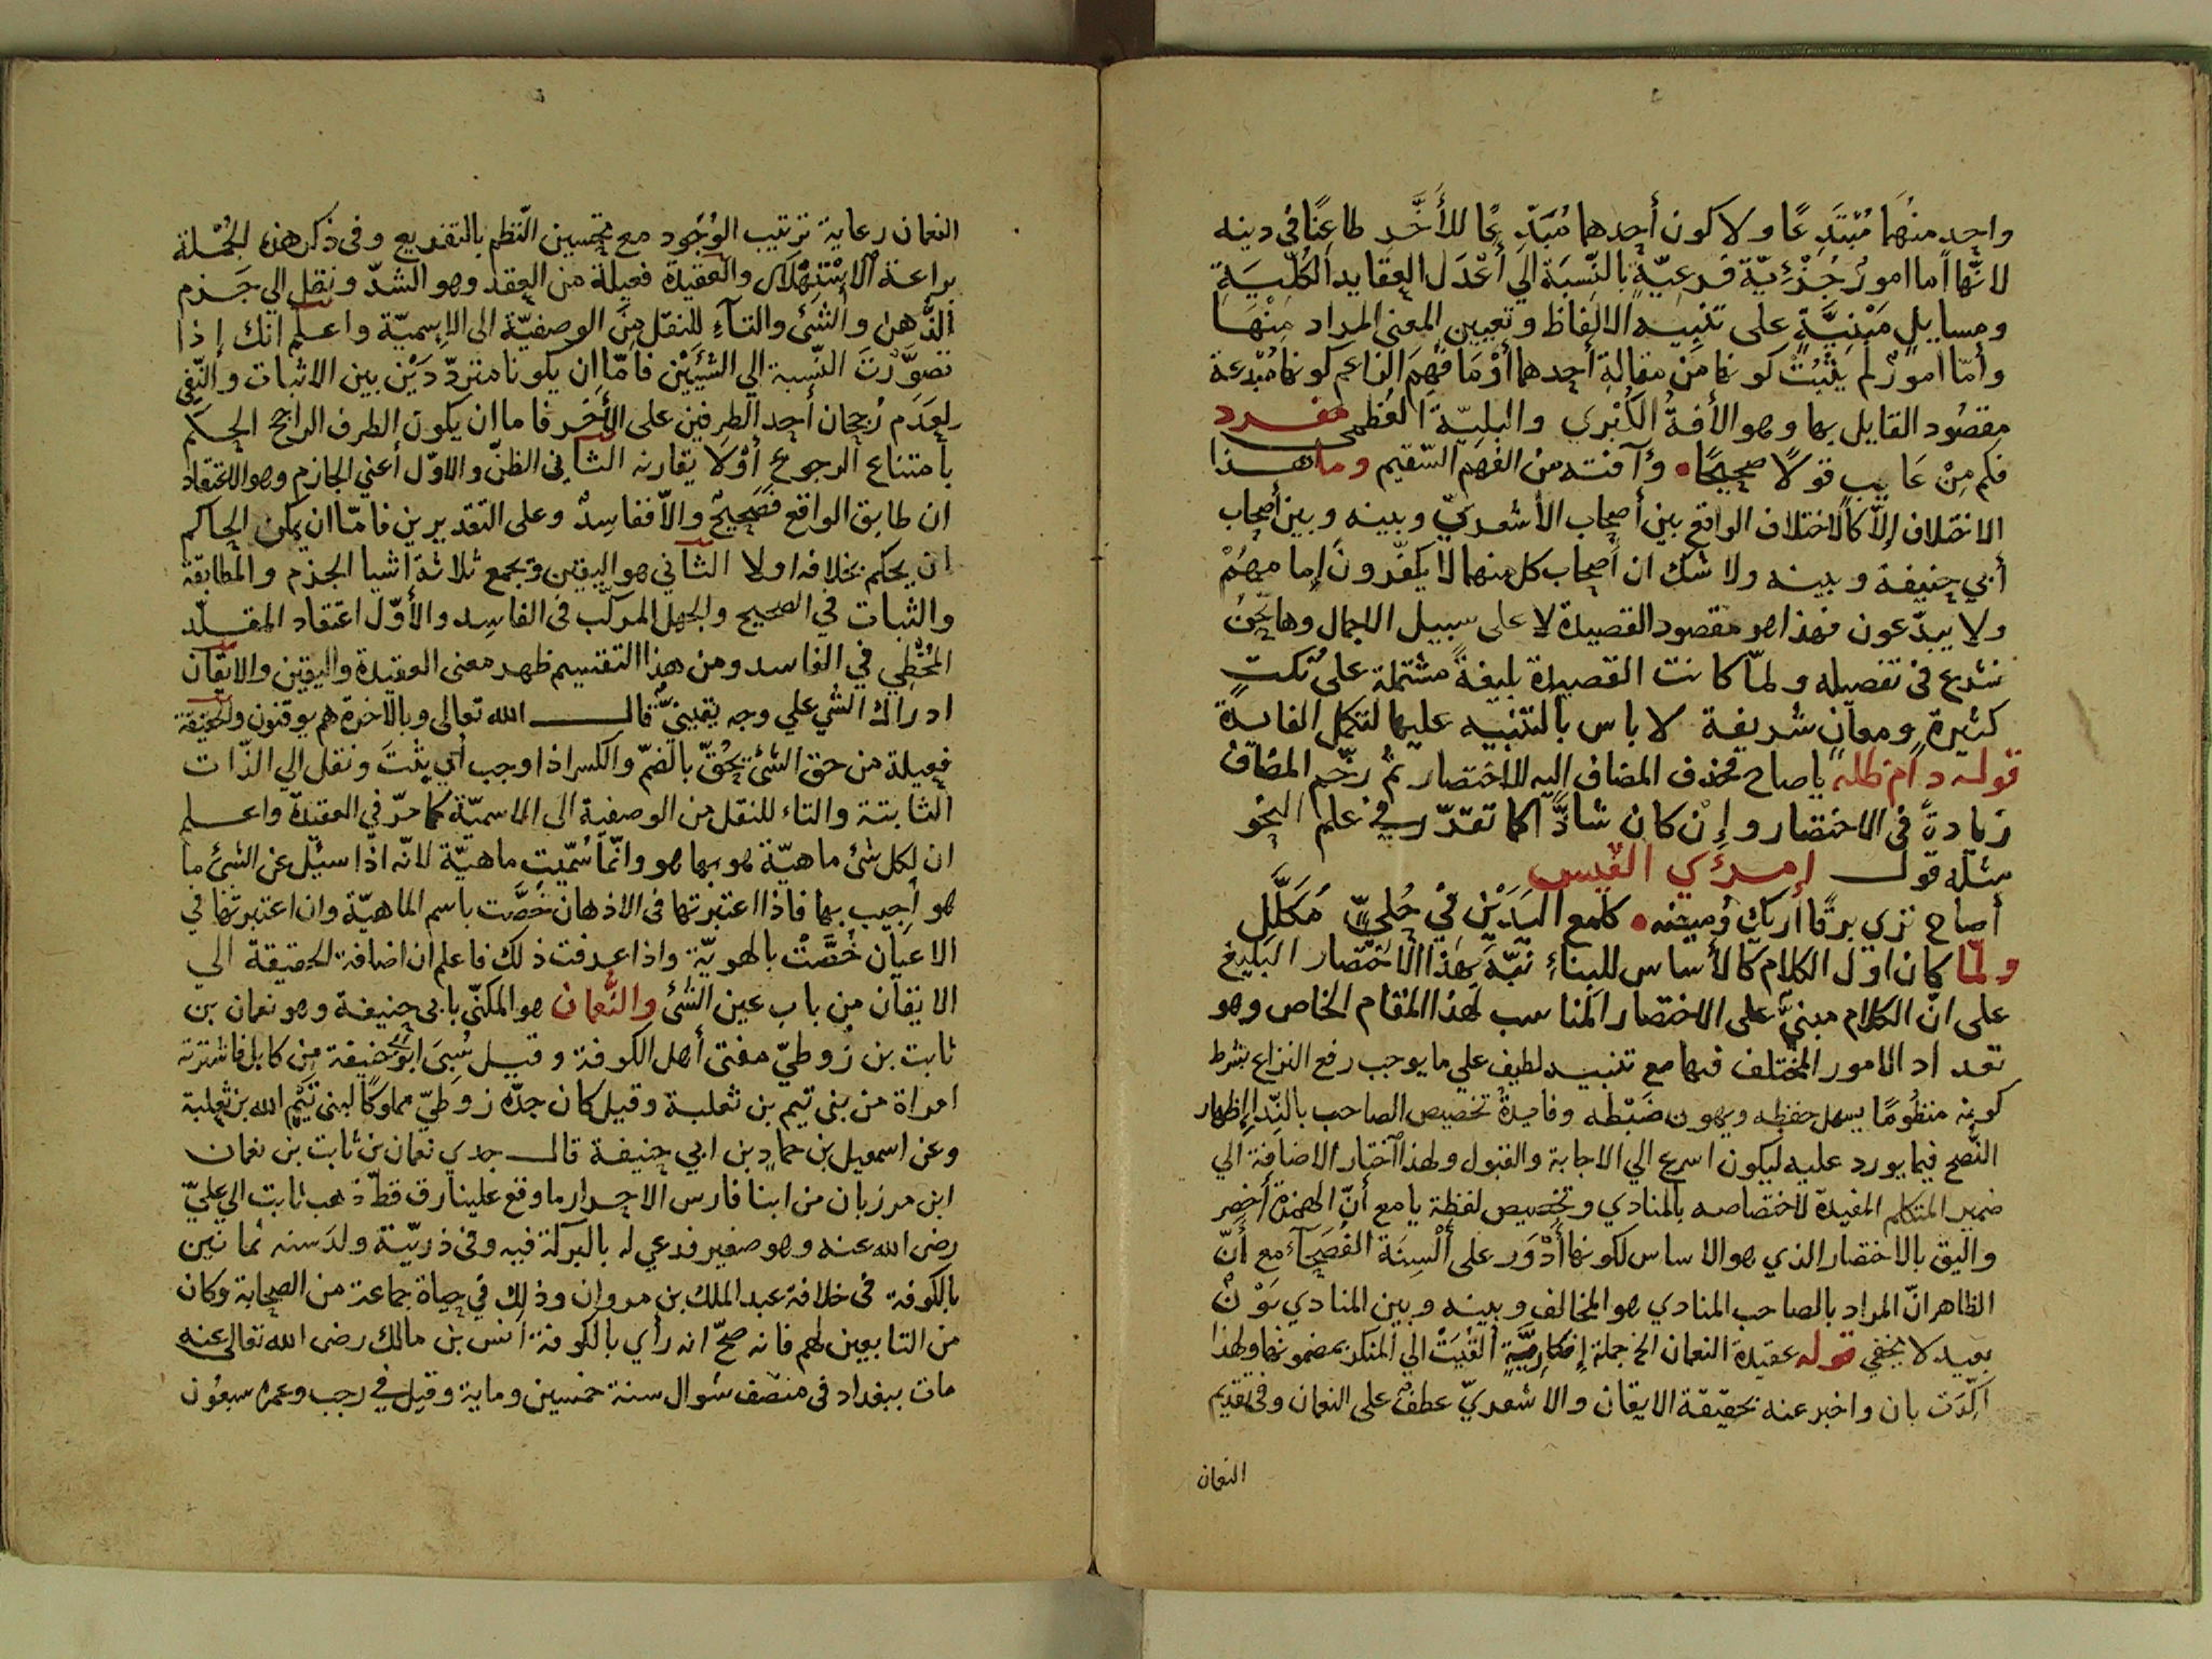 واحد منهُمَا مُبْتَدِعًا ولا كون أحدهما مُبَدِّعًا للأخَرِ طاعِنًا في دينه
لانّها أما امورٌ جُزْئِيّة فرعِيّةٍ بالنِّسبَة الَي أعْدَل العقايد الكُلّيَةِ
ومسايلٍ مَبْنِيَّةٍ على تنبيه الالفاظ وتعيين المعنى المراد مِنْهَا
وأمّا امورٌ لم يَثْبُتْ كونها مِن مقالةِ أحدهما أوْ مَا فَهِمَ الزاعم كونها مُبْدعة
مقصُود القايل بها وهو الأفةُ الكُبْرى والبليّة العُظمى مفرد
فكم مِنْ عَايبٍ قولًا صحيحًا • وآفته من الفهم السّقيم وما هذا
الاختلاف إلّا كالاختلاف الواقع بين أصحاب الأشعريّ وبينه وبين أصحاب
أبي حنيفة وبينه ولا شك ان أصحاب كل منهما لا يكفّرون إمامهُمْ
ولا يبدّعون فهذا هو مقصود القصيدة لا على سبيل الاجمال وها نحن
نشرع في تفصيله ولمّا كانت القصيدة بليغةً مشتملة على نُكتٍ
كثيرةٍ ومعانٍ شريفة لا باس بالتنبيه عليها لتكمل الفايدة
قوله دام ظله ياصاح فحذف المضاف اليه للاختصار ثم رخّم المضاف
زيادةً في الاختصار وإنْ كان شاذًّا كما تقرّر في علم النحو
مثله قول إمرئي القيس
أصاح تري برقًا أريك وميضه • كلمع اليدَيْن في حُلِيٍّ مُكَلَّلِ
ولمّا كان اول الكلام كالأساس للبناءِ نبّهَ بهذا الاختصار البليغ
على انّ الكلام مبنيٌّ على الاختصار المناسب لهذا المقام الخاص وهو
تعداد الامور المختلف فيها مع تنبيه لطيف علي ما يوجب رفع النزاع بشرط
كونه منظُومًا يسهل حفظه ويهون ضَبْطه وفايدةُ تخصيص الصاحب بالنِّدا إظهار
النُّصح فيما يورد عليه ليكون اسرع الي الاجابة والقبول ولهذا اختار الاضافة الي
ضمير المتكلم المفيدة لاختصاصه بالمنادي وتخصيص لفظة يا مع أنّ الهمزة أخصر
واليق بالاختصار الذي هو الاساس لكونها أدْوَر على ألْسِنَة الفُصَحآء مع أنّ
الظاهر انّ المراد بالصاحب المنادي هو المخالف وبينه وبين المنادي بَوْنٌ
بعيد لا يخفي قوله عقيدة النعمان الخ جملة إنكارِيَّةٍ ألقيَتْ الي المنكر بمضمونها ولهذا
اكّدَت بان واخبر عنه بحقيقة الايقان والاشعريّ عطفٌ على النعمان وفي تقديم
النعمان
النعمان رعاية ترتيب الوُجُود مع تحسين النّظم بالتفريع وفى ذكر هذه الجُمْلة
براعة الاسْتِهْلَال والعقيدة فعيلة من العقد وهو الشدّ ونقل الي جَزم
الذِّهن والشئ والتآء للنقل مِنَ الوصفيّة الى الاسميّة واعلم انك إذا
تصَوَّرْتَ النّسبة الي الشَيْئَيْن فامّا ان يكونا متردّدَيْن بين الاثبات والنّفي
لِعَدَم رُجحان أحد الطرفين على الأخر فاما ان يكون الطرف الراجح الحكم
بامتناع المرجوع أوْلَا يقارنه الثاني الظنّ والاوّل أعني الجازم وهو الاعتقاد
ان طابق الواقع فَصَحيحٌ والّا ففاسِدٌ وعلى التقديرين فامّا ان يمكن الحاكم
ان يحكم بخلافه اولا الثاني هو اليقين ويجمع ثلاثة اشيا الجزم والمطابقة
والثبات في الصحيح والجهل المركّب في الفاسِد والأوّل اعتقاد المقلّد
المُخطِي في الفاسد ومن هذا التقسيم ظهر معنى العقيدة واليقين والايقان
ادراك الشي علي وجه يقينيّ قال الله تعالى وبالاخرة هم يوقنون والحقيقة
فعيلة من حق الشئ يَحُقّ بالضمّ والكسر اذا وجب أي يثبتَ ونقل الي الذّات
الثابتة والتاء للنقل من الوصفية الى الاسميّة كما مرّ في العقيدة واعلم
ان لكل شئ ماهيّة هو بها هو وانّما سُمّيت ماهيّة لانّه اذا سئل عن الشئ ما
هو أجيب بها فاذا اعتبرتها في الاذهان خُصَّت باسم الماهيّة وان اعتبرتها في
الاعيان خُصَّتْ بالهويّة واذا عرفت ذلك فاعلم ان اضافة الحقيقة الي
الايقان من باب عين الشئ والنُّعمان هو المكنّى بابي حنيفة وهو نعمان بن
ثابت بن زُوطيّ مفتى أهل الكوفة وقيل سُبِيَ ابو حنيفة من كابل فاشترته
امراة من بني تيم بن ثعلبة وقيل كان جدّه زوطيّ مملوكًا لبنى تَيْم الله بن ثعلبة
وعن اسمعيل بن حمادٍ بن ابي حنيفة قال جدي نعمان بن ثابت بن نعمان
ابن مرزبان من ابنا فارس الاحرار ما وقع علينا رق قطّ ذهب ثابت الي عليّ
رضى الله عنه وهو صغير فدعي له بالبركة فيه وفى ذريّة ولد سنه ثمانين
بالكوفة فى خلافة عبد الملك بن مروان وذلك في حياة جماعة من الصحابة وكان
من التابعين لهم فانه صحّ انه رأي بالكوفة أنس بن مالك رضى الله تعالى عنه
مات ببغداد فى منصف شوال سنة خمسين وماية وقيل في رجب وعمره سبعُون